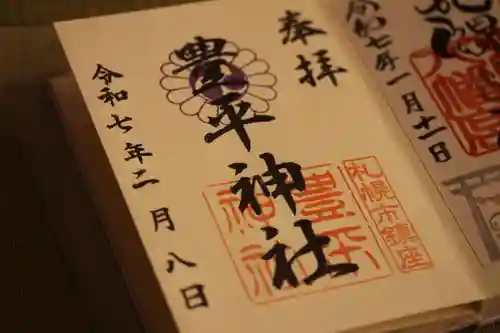 奉拝
豊平神社
札幌市鎮座
豊平
神社
令和七年二月八日
令和七年一月十一日